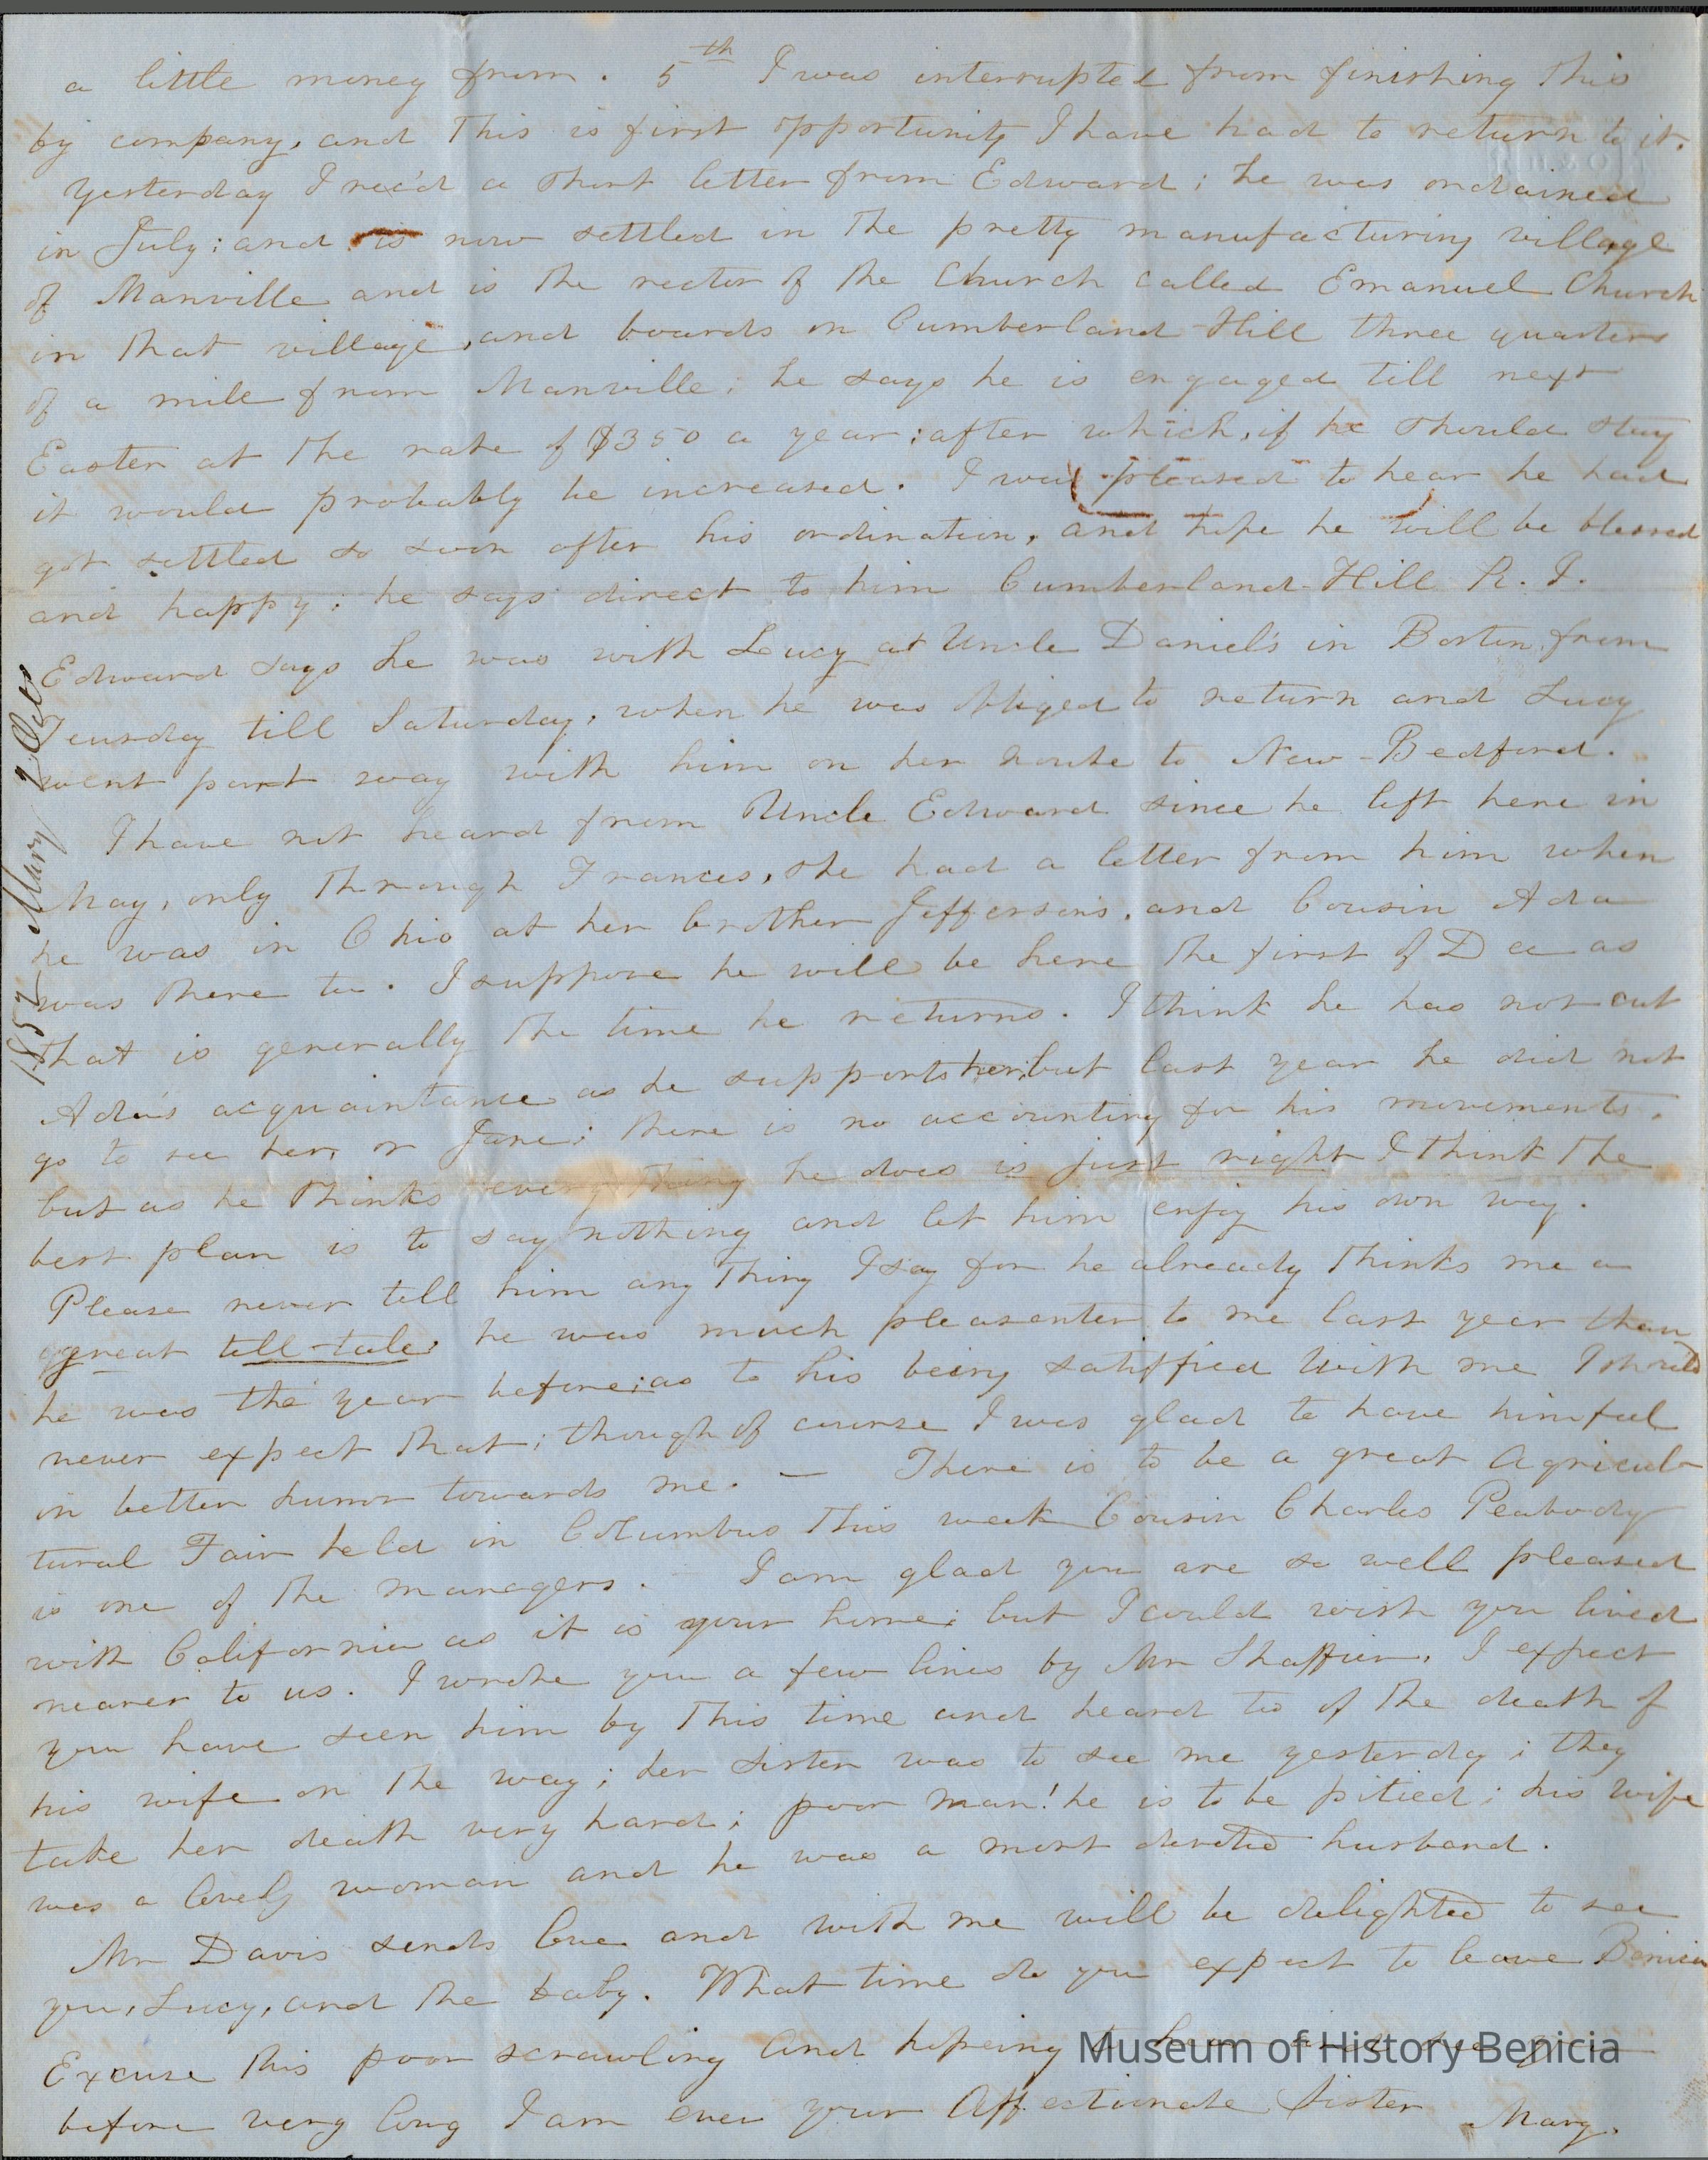 a little money from. 5th I was interrupted from finishing this
by company, and this is first opportunity I have had to return to it.
Yesterday I rec'd a short letter from Edward; he was ordained
in July; and is now settled in the pretty manufacturing village
of Manville and is the rector of the Church called Emanuel Church
in that village, and boards on Cumberland Hill three quarters
of a mile from Manville; he says he is engaged till next
Easter at the rate of $350 a year; after which, if he should stay
it would probably be increased. I was pleased to hear he had
got settled so soon after his ordination, and hope he will be blessed
and happy; he says direct to him Cumberland-Hill R. I.
Edward says he was with Lucy at Uncle Daniel's in Boston from
Teusday till Saturday, when he was obliged to return and Lucy
went part way with him on her route to New-Bedford.
I have not heard from Uncle Edward since he left here in
May, only through Frances, she had a letter from him when
he was in Ohio at her brother Jefferson's, and Cousin Ada
was there too. I suppose he will be here the first of Dec as
that is generally the time he returns. I think he has not cut
Ada's acquaintance as he supports her, but last year he did not
go to see her, or Jane; there is no accounting for his movements,
but as he thinks every thing he does is just right I think the
best plan is to say nothing and let him enjoy his own way.
Please never tell him any thing I say for he already thinks me a
great tell-tale; he was much pleasanter to me last year than
he was the year before; as to his being satisfied with me I should
never expect that; though of course I was glad to have him feel
in better humor towards me. — There is to be a great Agricul-
tural Fair held in Columbus this week Cousin Charles Peabody
is one of the managers. — I am glad you are so well pleased
with California as it is your home; but I could wish you lived
nearer to us. I wrote you a few lines by Mr Shaffier, I expect
you have seen him by this time and heard too of the death of
his wife on the way; her sister was to see me yesterday; they
take her death very hard; poor man! he is to be pitied; his wife
was a lovely woman and he was a most devoted husband.
Mr Davis sends love and with me will be delighted to see
you, Lucy, and the baby. What time do you expect to leave Benicia
Excuse this poor scrawling and hopeing to
before very long I am ever your Affectionate Sister Mary.
1857 Mary 2 Oct
Museum of History Benicia